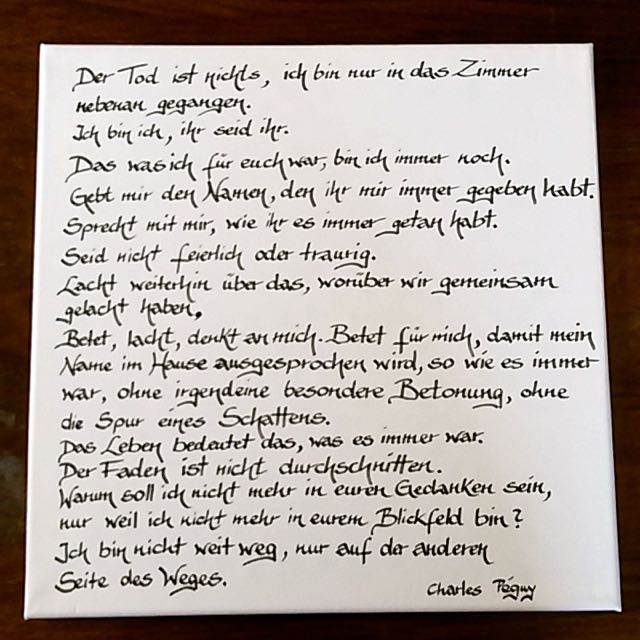 Der Tod ist nichts, ich bin nur in das Zimmer
nebenan gegangen.
Ich bin ich, ihr seid ihr.
Das was ich für euch war, bin ich immer noch.
Gebt mir den Namen, den ihr mir immer gegeben habt.
Sprecht mit mir, wie ihr es immer getan habt.
Seid nicht feierlich oder traurig.
Lacht weiterhin über das, worüber wir gemeinsam
gelacht haben.
Betet, lacht, denkt an mich. Betet für mich, damit mein
Name im Hause ausgesprochen wird, so wie es immer
war, ohne irgendeine besondere Betonung, ohne
die Spur eines Schattens.
Das Leben bedeutet das, was es immer war.
Der Faden ist nicht durchschnitten.
Warum soll ich nicht mehr in euren Gedanken sein,
nur weil ich nicht mehr in eurem Blickfeld bin?
Ich bin nicht weit weg, nur auf der anderen
Seite des Weges.
Charles Péguy